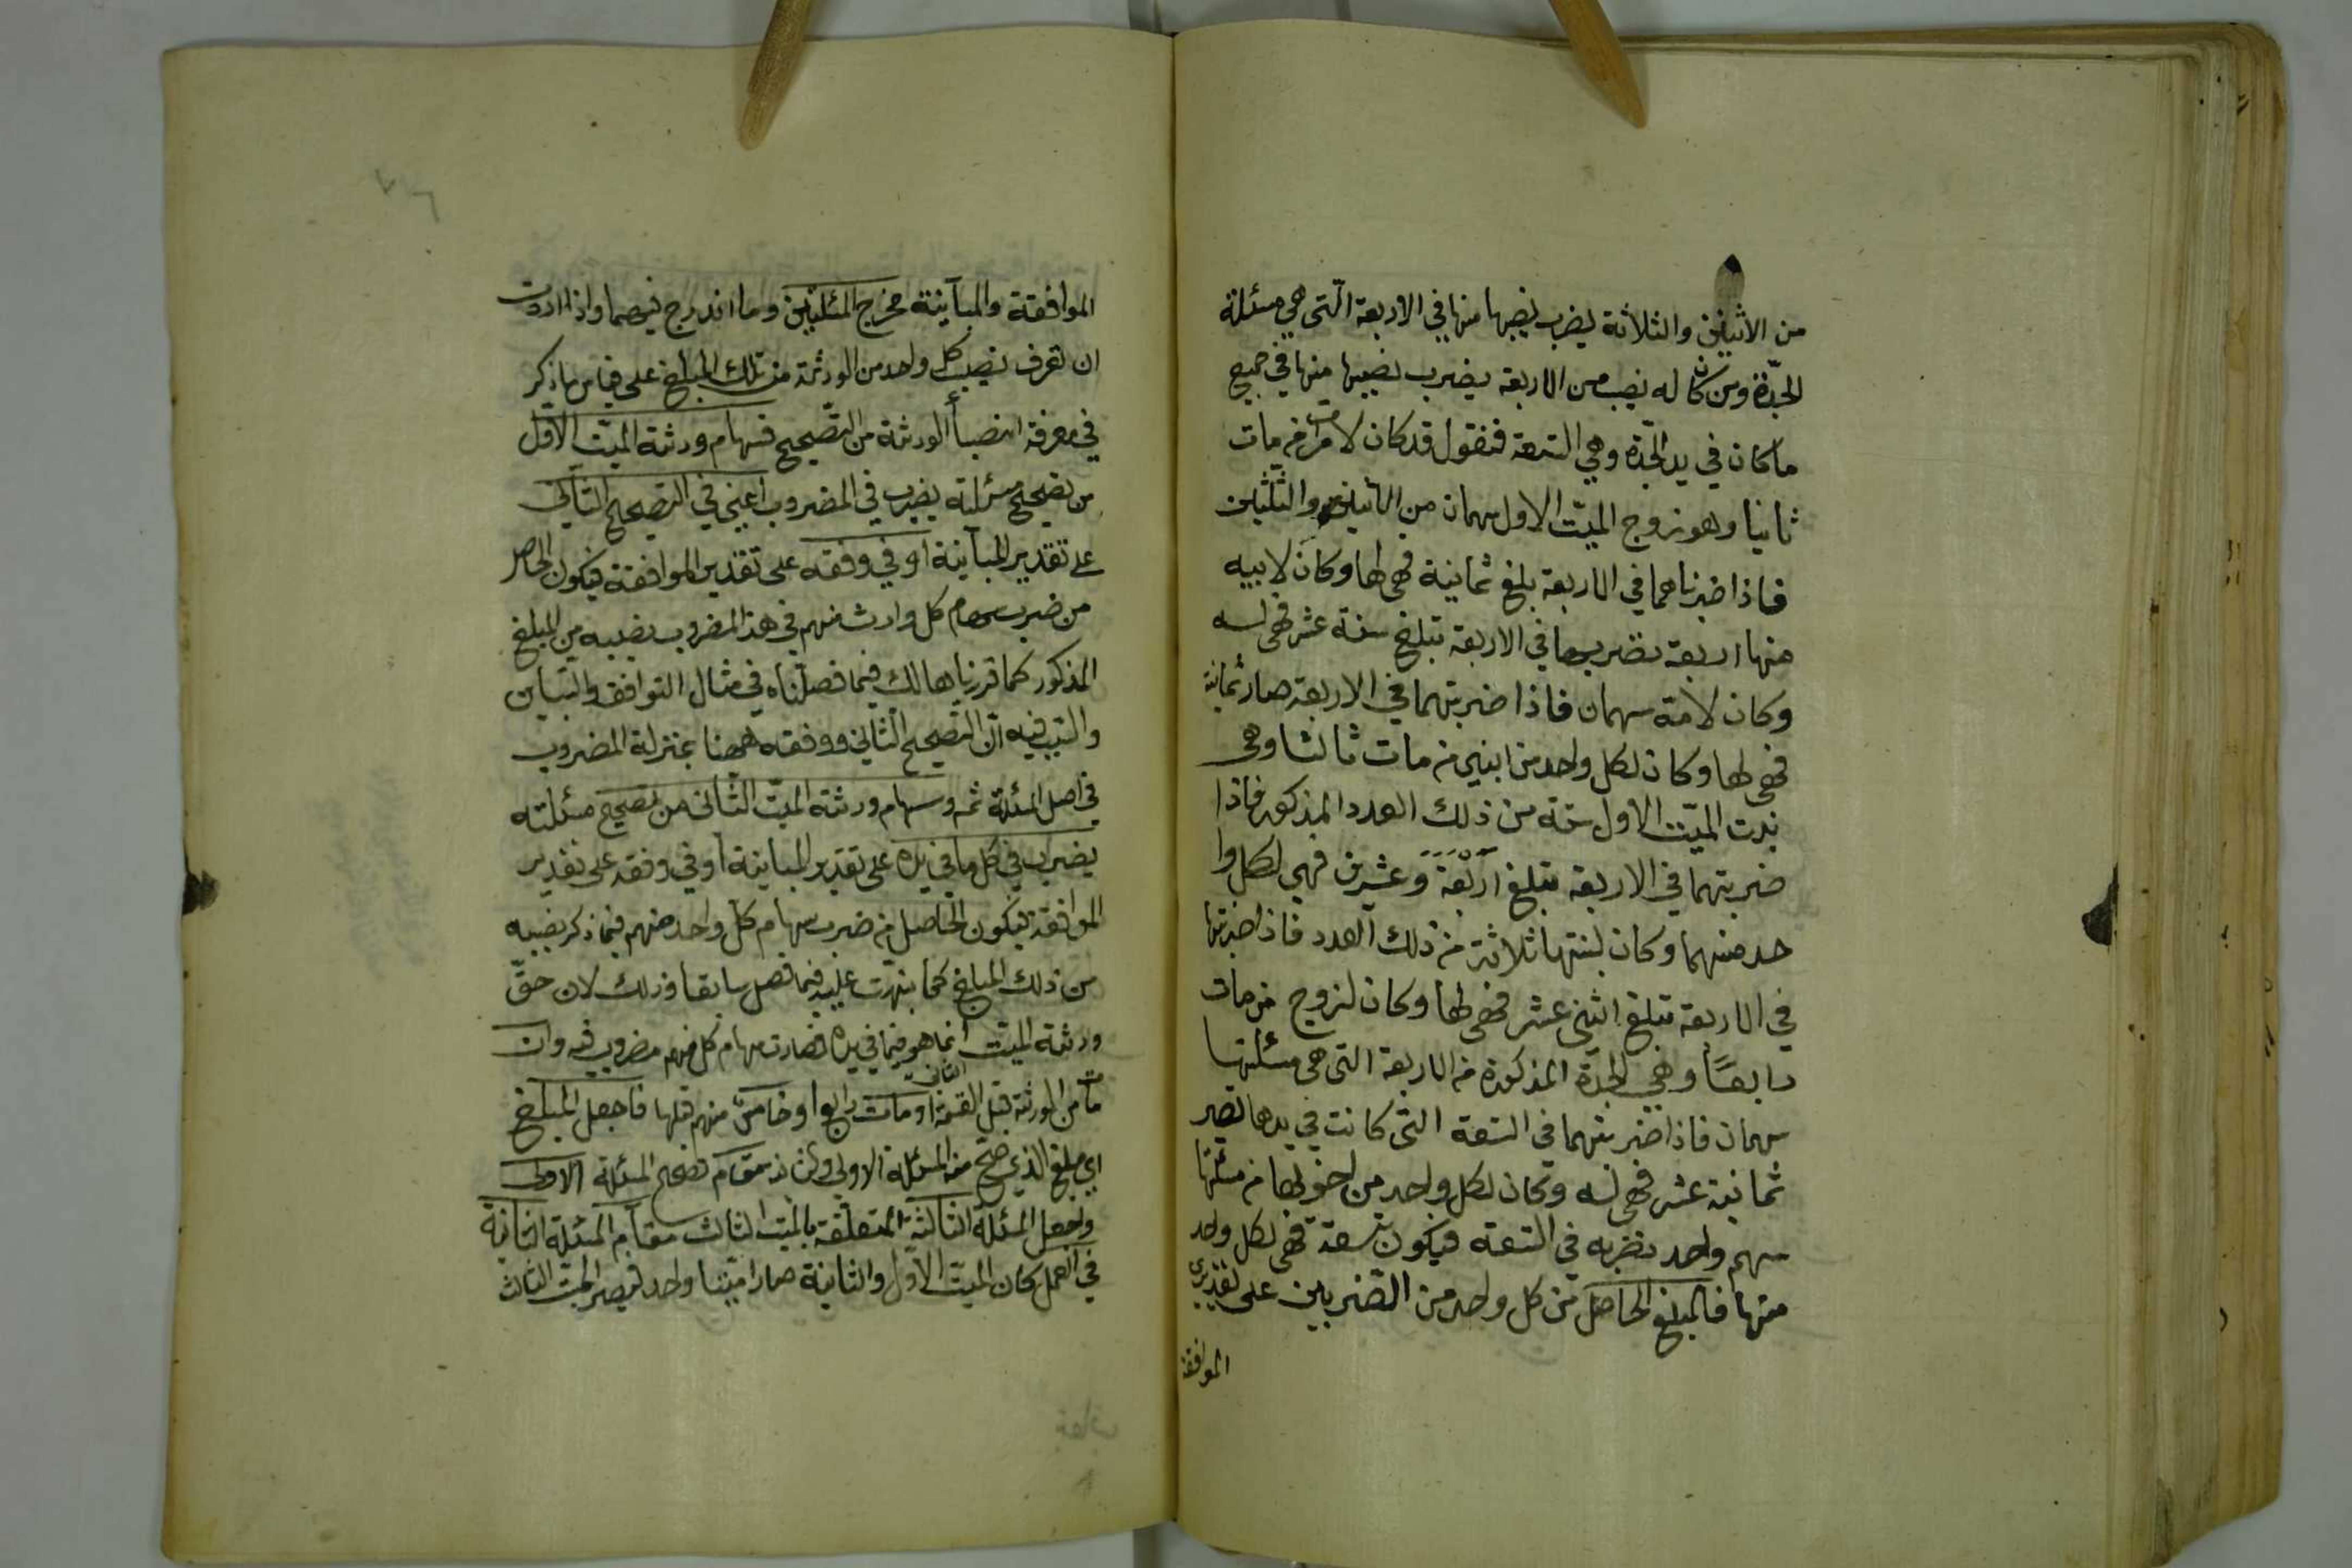 من الاثنين والثلاثة يضرب نصيبها منها في الاربعة الّتي هي مسئلة
الجدّة ومن كان له نصيب من الاربعة يضرب نصيبها منها في جميع
ما كان في يد الجدّة وهي التسعة فنقول قد كان لامرات من مات
ثانيا وهو زوج الميّت الاول سهمان من الاثنين والثلثين
فاذا ضربناهما في الاربعة بلغ ثمانية فهي لها وكان لابيه
منها اربعة نضربها في الاربعة تبلغ ستة عشر فهي له
وكان لامّه سهمان فاذا ضربتهما في الاربعة صار ثمانية
فهي لها وكان لكل واحد من ابني من مات ثالثا وهي
بنت الميّت الاول ستة من ذلك العدد المذكور فاذا
ضربتهما في الاربعة تبلغ اربعة وعشرين فهي لكل وا
حد منهما وكان لبنتها ثلاثة من ذلك العدد فاذا ضربتها
في الاربعة تبلغ اثني عشر فهي لها وكان لزوج من مات
رابعًا وهي الجدّة المذكورة من الاربعة التي هي مسئلتها
سهمان فاذا ضربتهما في التسعة التي كانت في يدها تصير
ثمانية عشر فهي له وكان لكل واحد من اخويها من مسئلتها
سهم واحد نضربه في التسعة فيكون تسعة فهي لكل واحد
منها فالمبلغ الحاصل من كل واحد من الضربين على تقديري
الموافقة
الموافقة والمباينة مخرج المسئلتين وما اندرج فيهما واذا اردت
ان تعرف نصيب كل واحد من الورثة من تلك المبلغ على قياس ما ذكر
في معرفة انصباء الورثة من التصحيح فسهام ورثة الميّت الاوّل
من تصحيح مسئلته يضرب في المضروب اعني في التصحيح الثاني
على تقدير المباينة او في وفقه على تقدير الموافقة فيكون الحاصل
من ضرب سهام كل وارث منهم في هذا المضروب نصيبه من المبلغ
المذكور كما قررناها لك فيما فصلناه في مثال التوافق والتباين
والسبب فيه انّ التصحيح الثاني ووفقه ههنا بمنزلة المضروب
في اصل المسئلة ثمه وسهام ورثة الميّت الثاني من تصحيح مسئلته
يضرب في كل ما في يده على تقدير المباينة او في وفقه على تقدير
الموافقة فيكون الحاصل من ضرب سهام كل واحد منهم فيما ذكر نصيبه
من ذلك المبلغ كما نبهت عليه فيما فصل سابقا وذلك لان حقّ
ورثة الميّت الثاني انما هو فيما في يده فصارت سهام كل منهم مضروب فيه وان
مات من الورثة قبل القسمة او مات رابع او خامس منهم قبلها فاجعل المبلغ
اي مبلغ الذي صحّ منه المسئلة الاولى مقام تصحيح المسئلة الاولى
واجعل المسئلة الثالثة المتعلّقة بالميّت الثالث مقام المسئلة الثانية
في العمل كان الميّت الاوّل والثانية صارا ميّتا واحد فيصير الميّت الثالث